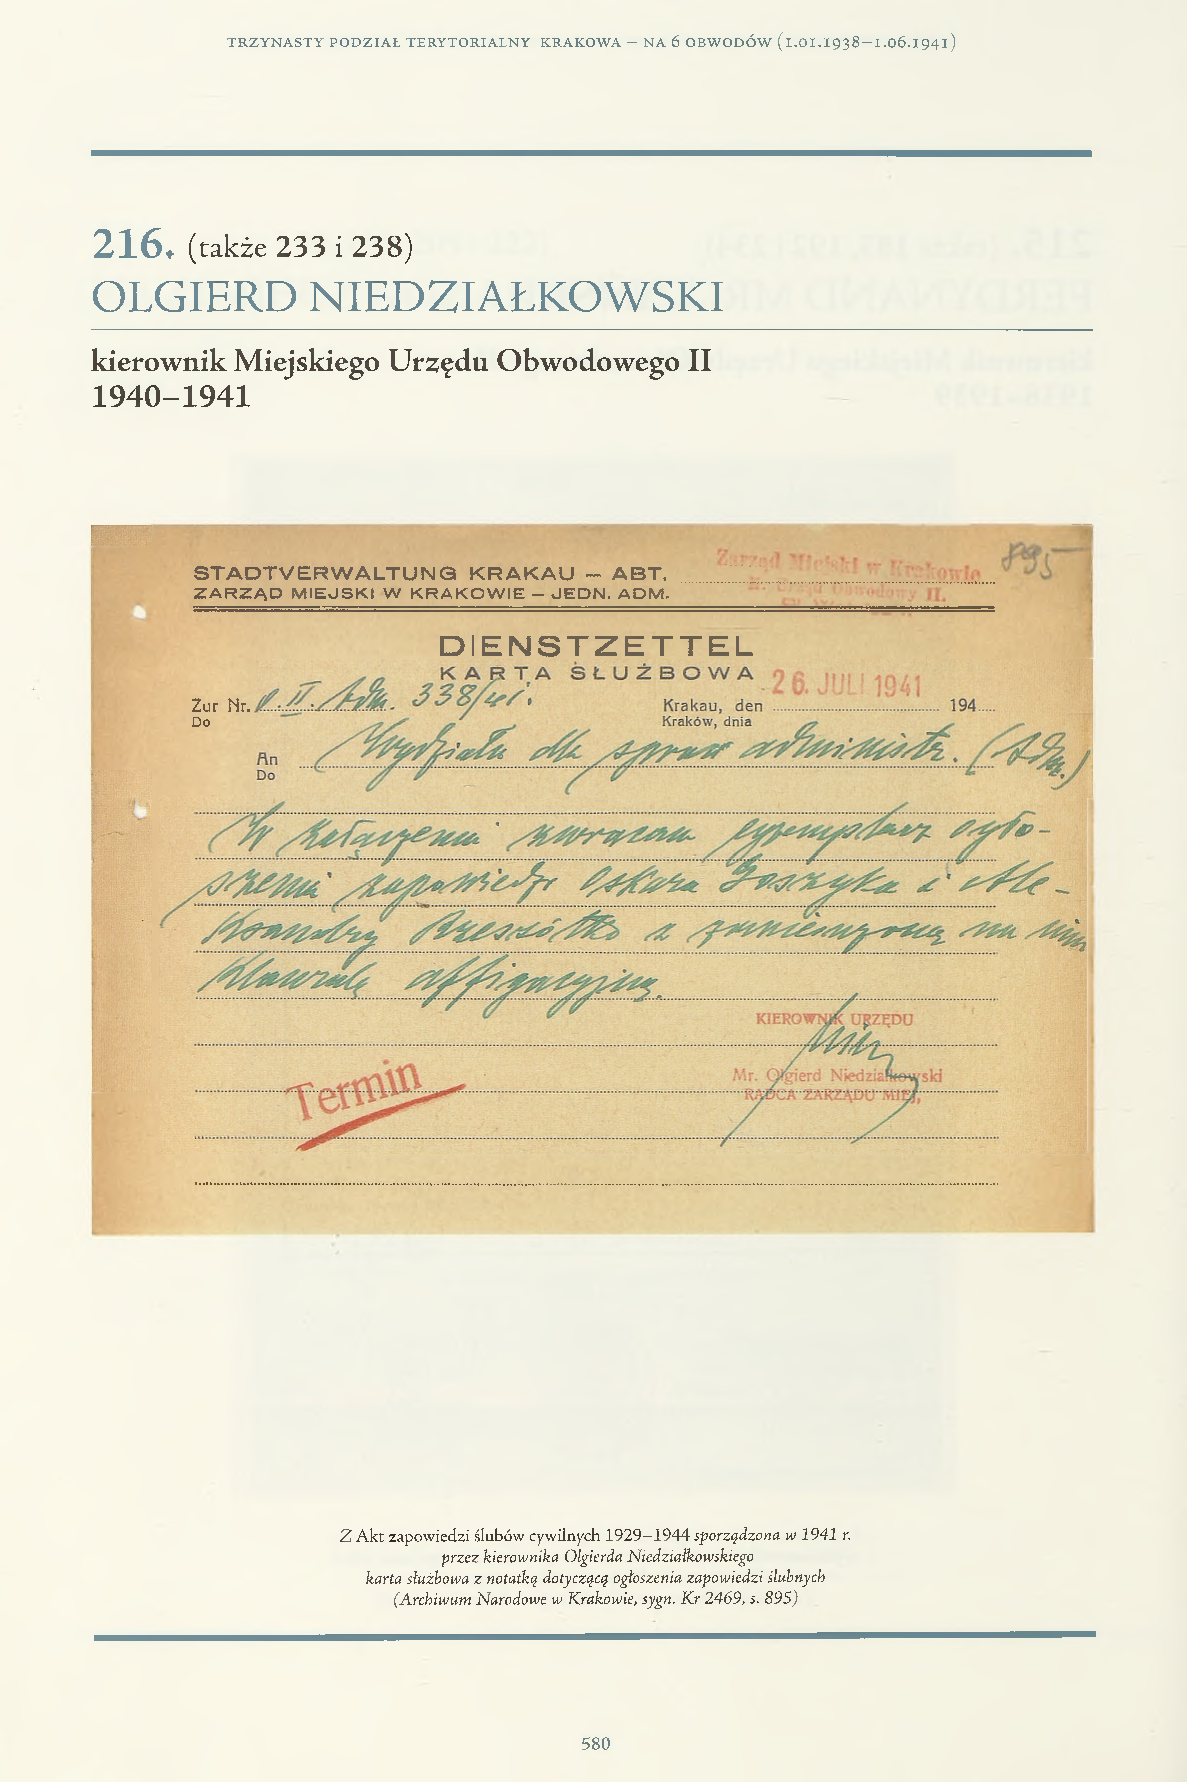 TRZYNASTY PODZIAŁ TERYTORIALNY KRAKOWA – NA 6 OBWODÓW (1.01.1938–1.06.1941)
216. (także 233 i 238)
OLGIERD NIEDZIAŁKOWSKI
kierownik Miejskiego Urzędu Obwodowego II
1940–1941
895
STADTVERWALTUNG KRAKAU — ABT.
Zarząd Miejski w Krakowie
ZARZĄD MIEJSKI W KRAKOWIE — JEDN. ADM.
Obwodowy II.
DIENSTZETTEL
KARTA SŁUŻBOWA
26. JULI 1941
Zur Nr. II. Adm. 338/41.
Krakau, den 194
Do
Kraków, dnia
An Wydziału dla spraw administr. (Adm.)
Do
W załączeniu zwracam egzemplarz ogło-
szenia zapowiedzi Oskara i Ale-
ksandry z zamieszczoną na nim
klauzulą affigacyjną.
KIEROWNIK URZĘDU
Termin
Mr. Olgierd Niedziałkowski
RADCA ZARZĄDU MIEJ,
Z Akt zapowiedzi ślubów cywilnych 1929–1944 sporządzona w 1941 r.
przez kierownika Olgierda Niedziałkowskiego
karta służbowa z notatką dotyczącą ogłoszenia zapowiedzi ślubnych
(Archiwum Narodowe w Krakowie, sygn. Kr 2469, s. 895)
580